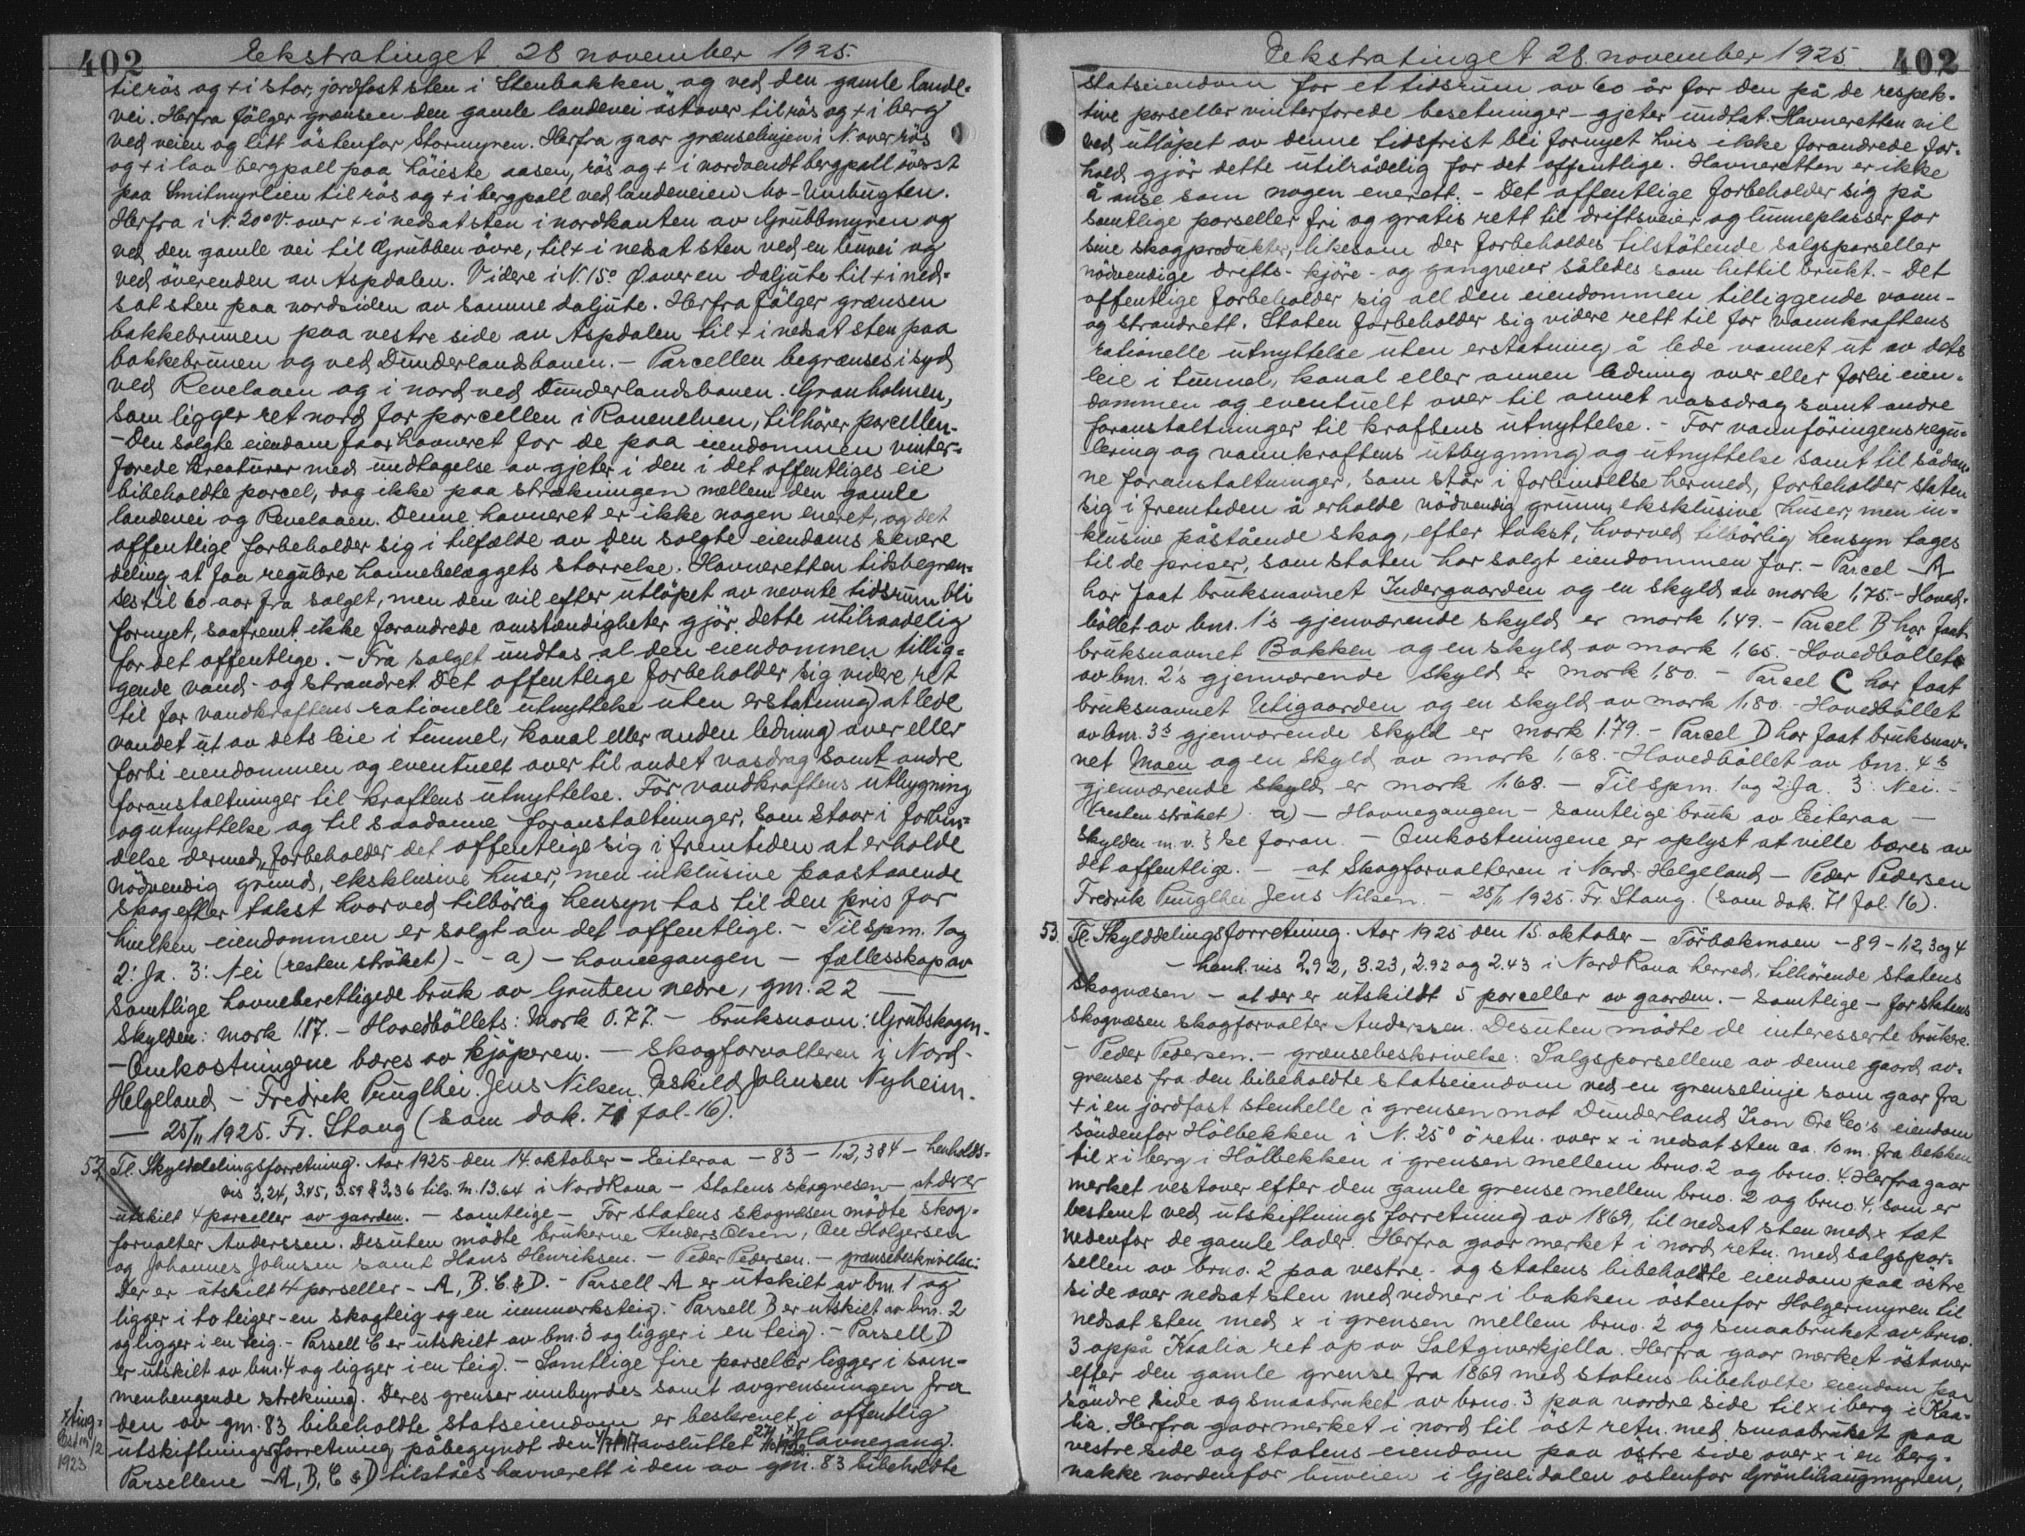 402 Ekstratinget 28 november 1925.
til rös og + i stor, jordfast sten i Stenbakken og ved den gamle lande-
vei. Herfra fölger grænsen den gamle landevei östover til rös og + i berg
ved veien og litt östenfor Stormyren. Herfra gaar grænselinjen i N. over rös
og + i lav bergpall paa höieste aasen, rös og + i nordvendt bergpall överst
paa Smitmyrlien til rös og + i bergpall ved landeveien Mo-Umbugten.
Herfra i N. 20° V. over + i nedsat sten i nordkanten av Grubbmyren og
ved den gamle vei til Grubben övre, til + i nedsat sten ved en tunvei og
ved överenden av Aspdalen. Videre i N. 15° Ö over en daljute til + i ned-
sat sten paa nordsiden av samme daljute. Herfra fölger grænsen
bakkebrunen paa vestre side av Aspdalen til + i nedsat sten paa
bakkebrunen og ved Dunderlandsbanen. - Parcellen begrænses i syd
ved Revelaaen og i nord ved Dunderlandsbanen. Granholmen,
som ligger ret nord for parcellen i Ranenelven, tilhörer parcellen.
- Den solgte eiendom faar havneret for de paa eiendommen vinter-
forede kreaturer med undtagelse av gjeter i den i det offentliges eie
bibeholdte parcel, dog ikke paa strækningen mellem den gamle
landevei og Revelaaen. Denne havneret er ikke nogen eneret, og det
offentlige forbeholder sig i tilfælde av den solgte eiendoms senere
deling at faa regulere havnebelæggets störrelse. Havneretten tidsbegræn-
ses til 60 aar fra salget, men den vil efter utlöpet av nevnte tidsrum bli
fornyet, saafremt ikke forandrede omstændigheter gjör dette utilraadelig
for det offentlige. - Fra salget undtas al den eiendommen tillig-
gende vand- og strandret. Det offentlige forbeholder sig videre ret
til for vandkraftens rationelle utnyttelse uten erstatning at lede
vandet ut av dets leie i tunnel, kanal eller anden ledning over eller
forbi eiendommen og eventuelt over til andet vasdrag samt andre
foranstaltninger til kraftens utnyttelse. For vandkraftens utbygning
og utnyttelse og til saadanne foranstaltninger, som staar i forbin-
delse dermed, forbeholder det offentlige sig i fremtiden at erholde
nödvendig grund, eksklusive huser, men inklusive paastaaende
skog efter takst hvorved tilbörlig hensyn tas til den pris for
hvilken eiendommen er solgt av det offentlige. - Til spm. 1 og
2: Ja. 3: Nei (resten ströket) - - a) - havnegangen - fællesskap av
samtlige havneberettigede bruk av Gruben nedre, gnr. 22 -
Skylden: mark 1.17. - Hovedböllets: Mark 0.77. - bruksnavn: Grubskogen.
- Omkostningene bæres av kjöperen. - skogforvalteren i Nord-
Helgeland - Fredrik Pünglhei. Jens Nilsen. Eskild Johnsen Nyheim.
- 25/11 1925. Fr. Stang (som dok. 71 fol. 16).
52 Tl. Skylddelingsforretning. Aar 1925 den 14. oktober - Eiteraa - 83 - 1,2,3&4 - henholds-
vis 3,24, 3.45, 3.59 & 3,36 tils. m. 13.64 i NordRana - Statens skogvesen - at der er
utskilt 4 parceller av gaarden. - samtlige - For statens skogvæsen mödte skog-
forvalter Anderssen. Desuten mödte brukerne Anders Olsen, Ole Holgersen
og Johannes Johnsen samt Hans Henriksen. - Peder Pedersen. - grænsebeskrivelse:
Der er utskilt 4 parseller - A, B. C. & D. - Parsell A er utskilt av bnr. 1 og
ligger i to teiger - en skogteig og en innmarksteig. - Parsell B er utskilt av bnr. 2
og ligger i en teig - Parsell C er utskilt av bnr. 3 og ligger i en teig. - Parsell D
er utskilt av bnr. 4 og ligger i en teig. - Samtlige fire parseller ligger i sam-
menhengende strekning. Deres grenser innbyrdes samt avgrensningen fra
den av gnr. 83 bibeholdte statseiendom er beskrevet i offentlig
utskiftningsforretning påbegyndt den avsluttet Havnegang.
Parsellene A, B, C & D tilståes havnerett i den av gnr. 83 bibeholdte
1923
Ekstratinget 28. november 1925. 402
statseiendom for et tidsrum av 60 år for den på de respek-
tive parseller vinterforede besetninger - gjeter undtat. Havneretten vil
ved utlöpet av denne tidsfrist bli fornyet hvis ikke forandrede for-
hold gjör dette utilrådelig for det offentlige. Havneretten er ikke
å anse som nogen enerett. - Det offentlige forbeholder sig på
samtlige parseller fri og gratis rett til driftsveier og lunneplasser for
sine skogprodukter, likesom der forbeholdes tilstötende salgsparseller
nödvendige drifts- kjöre- og gangveier således som hittil brukt. - Det
offentlige forbeholder sig all den eiendommen tilliggende vann-
og strandrett. Staten forbeholder sig videre rett til for vannkraftens
rationelle utnyttelse uten erstatning å lede vannet ut av dets
leie i tunnel, kanal eller annen ledning over eller forbi eien-
dommen og eventuelt over til annet vassdrag samt andre
foranstaltninger til kraftens utnyttelse. - For vannföringens regu-
lering og vannkraftens utbygning og utnyttelse samt til sådan-
ne foranstaltninger, som står i forbindelse hermed, forbeholder staten
sig i fremtiden å erholde nödvendig grunn, eksklusive huser, men in-
klusive påstående skog, efter takst, hvorved tilbörlig hensyn tages
til de priser, som staten har solgt eiendommen for. - Parcel A
har faat bruksnavnet Indergaarden og en skyld av mark 1,75. - Hoved-
böllet av bnr. 1's gjenværende skyld er mark 1.49. - Parcel B har faat
bruksnavnet Bakken og en skyld av mark 1,65. - Hovedböllet
av bnr. 2's gjenværende skyld er mark 1,80. - Parcel C har faat
bruksnavnet Utigaarden og en skyld av mark 1,80. - Hovedböllet
av bnr. 3s gjenværende skyld er mark 1.79. - Parcel D har faat bruksnav-
net Moen og en skyld av mark 1,68. - Hovedböllet av bnr. 4s
gjenværende skyld er mark 1.68. - Til spm. 1 og 2: Ja. 3: Nei. -
(resten ströket). a) - Havnegangen - samtlige bruk av Eiteraa -
skylden m. v. } se foran. - Omkostningene er oplyst at ville bæres av
det offentlige. - at Skogforvalteren i Nord-Helgeland - Peder Pedersen
Fredrik Pünglhei Jens Nilsen. - 25/11 1925. Fr. Stang. (som dok. 71 fol. 16).
53. Tl. Skylddelingsforretning. Aar 1925 den 15. oktober - Törbækmoen - 89 - 1,2,3 og 4
- henh.vis 2.92, 3.23, 2.92 og 2.43 i NordRana herred, tilhörende statens
skogvæsen - at der er utskildt 5 parceller av gaarden. - samtlige - for statens
skogvæsen skogforvalter Anderssen. Desuten mödte de interesserte brukere.
- Peder Pedersen. - grænsebeskrivelse: Salgsparsellene av denne gaard av-
grenses fra den bibeholdte statseiendom ved en grenselinje som gaar fra
+ i en jordfast stenhelle i grensen mot Dunderland Iron Ore Co's eiendom
söndenfor Hölbekken i N. 25° ö retn. over x i nedsat sten ca. 10 m. fra bekken
til x i berg i Hölbekken i grensen mellem brno. 2 og brno. 4. Herfra gaar
merket vestover efter den gamle grense mellem brno. 2 og brno. 4, som er
bestemt ved utskiftningsforretning av 1869, til nedsat sten med x tæt
nedenfor de gamle lader. Herfra gaar merket i nord retn. med salgspar-
sellen av brno. 2 paa vestre- og statens bibeholdte eiendom paa östre
side over nedsat sten med vidner i bakken östenfor Holgermyren til
nedsat sten med x i grensen mellem brno. 2 og smaabruket av brno.
3 oppå Kaalia ret op av Saltgiverkjella. Herfra gaar merket östover
efter den gamle grense fra 1869 med statens bibeholte eiendom paa
söndre side og smaabruket av brno. 3 paa nordre side til x i berg i Kaa-
lia. Herfra gaar merket i nord til öst retn. med smaabruket paa
vestre side og statens eiendom paa östre side over x i en berg-
nakke nordenfor tunveien i Gjeslidalen östenfor Grönlihaugmyren,